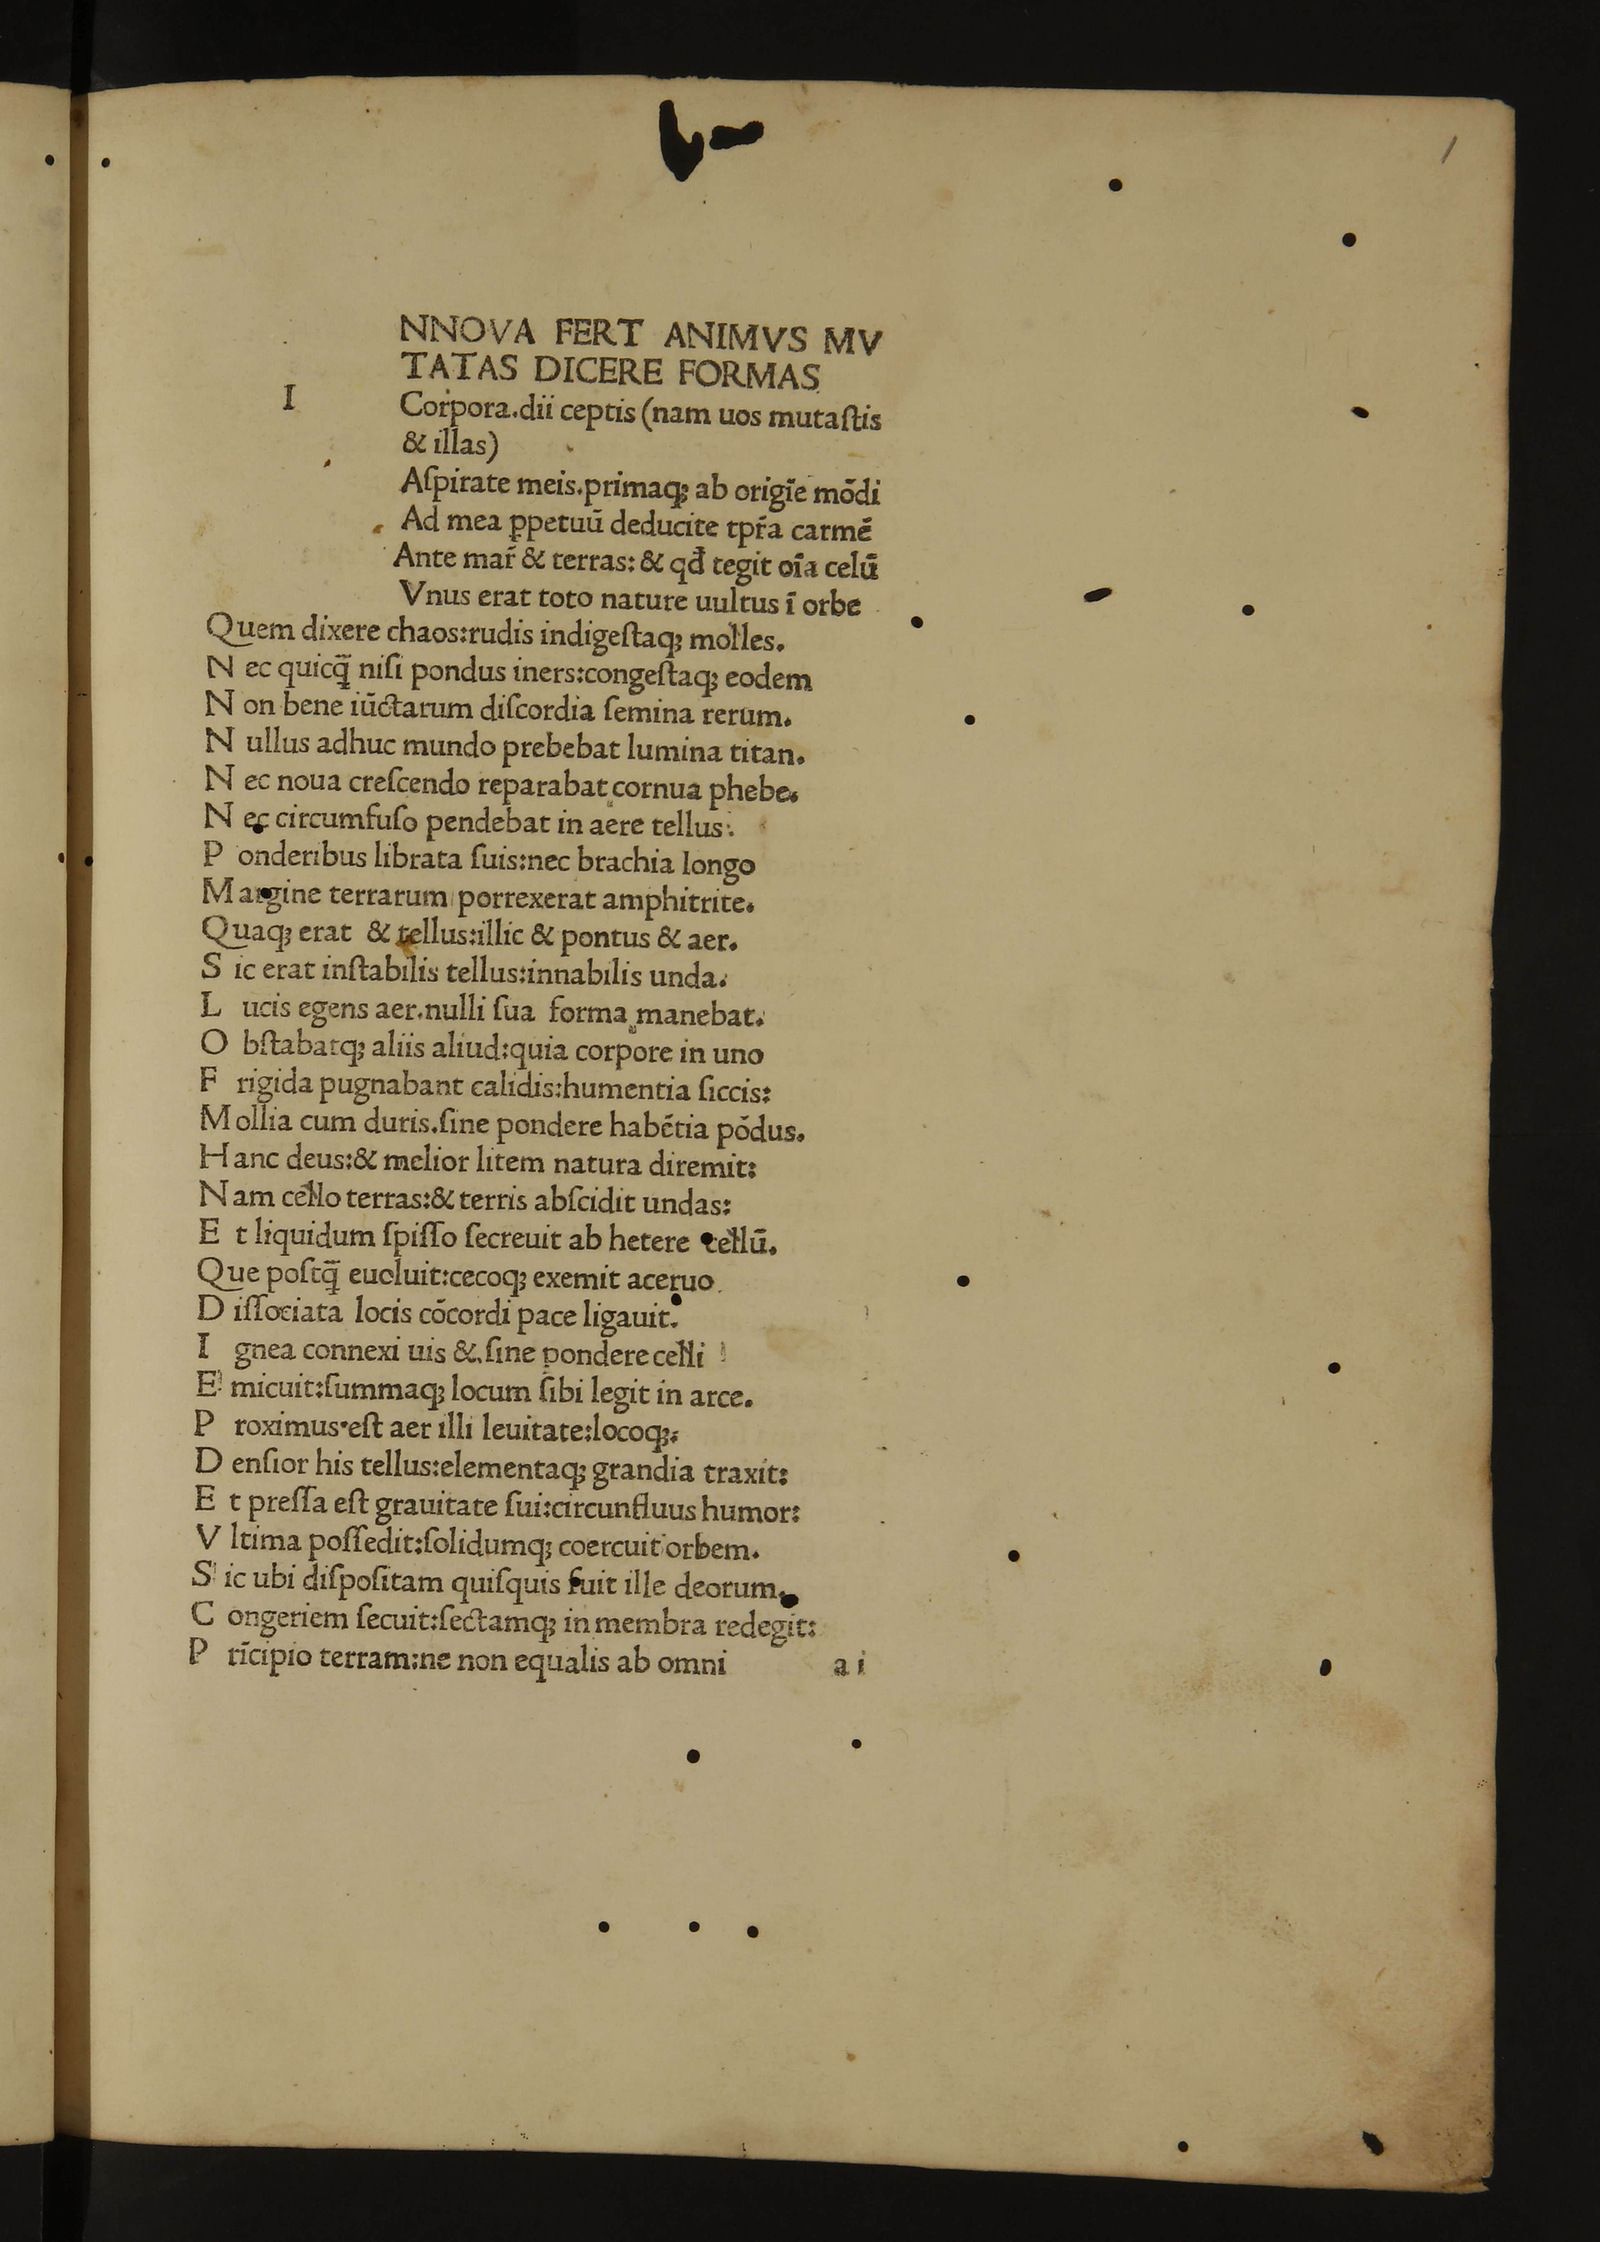 1
NNOVA FERT ANIMVS MV
TATAS DICERE FORMAS
I
Corpora.dii ceptis (nam uos mutaſtis
& illas)
Aſpirate meis.primaq; ab origīe mōdi
Ad mea ꝑpetuū deducite tpr̄a carmē
Ante mar̄ & terras: & qđ tegit oīa celū
Vnus erat toto nature uultus ī orbe
Quem dixere chaos:rudis indigeſtaq; molles.
N ec quicq̄ niſi pondus iners:congeſtaq; eodem
N on bene iūctarum diſcordia ſemina rerum.
N ullus adhuc mundo prebebat lumina titan.
N ec noua creſcendo reparabat cornua phebe.
N ec circumfuſo pendebat in aere tellus:
P onderibus librata ſuis:nec brachia longo
M argine terrarum porrexerat amphitrite.
Quaq; erat & tellus:illic & pontus & aer.
S ic erat inſtabilis tellus:innabilis unda.
L ucis egens aer.nulli ſua forma manebat.
O bſtabatq; aliis aliud:quia corpore in uno
F rigida pugnabant calidis:humentia ſiccis:
Mollia cum duris.ſine pondere habētia pōdus.
H anc deus:& melior litem natura diremit:
N am cello terras:& terris abſcidit undas:
E t liquidum ſpiſſo ſecreuit ab hetere cellū.
Que poſtq̄ euoluit:cecoq; exemit aceruo
D iſſociata locis cōcordi pace ligauit.
I gnea connexi uis & ſine pondere celli
E micuit:ſummaq; locum ſibi legit in arce.
P roximus eſt aer illi leuitate:locoq;.
D enſior his tellus:elementaq; grandia traxit:
E t preſſa eſt grauitate ſui:circunfluus humor:
V ltima poſſedit:ſolidumq; coercuit orbem.
S ic ubi diſpoſitam quiſquis fuit ille deorum.
C ongeriem ſecuit:ſectamq; in membra redegit:
P rīcipio terram:ne non equalis ab omni
a i